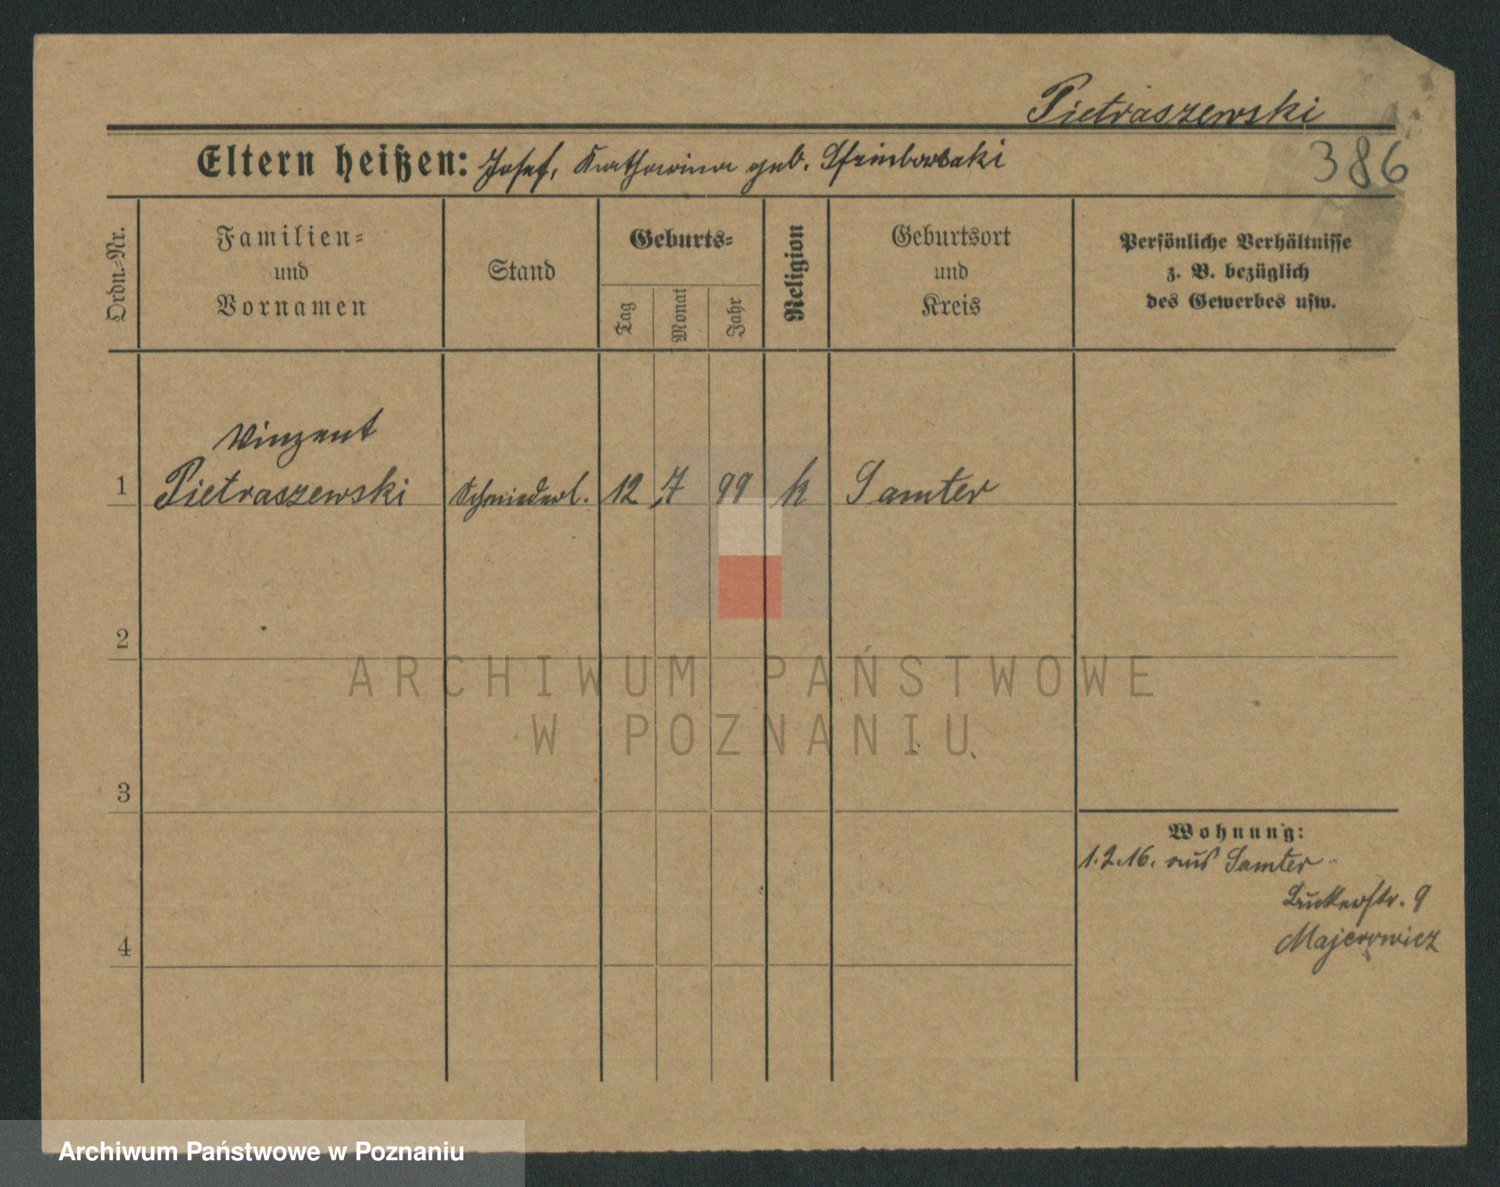 Pietraszewski
386
Eltern heißen: Josef, Katharina geb.
Ordn.-Nr.
Familien-
und
Vornamen
Stand
Geburts-
Tag
Monat
Jahr
Religion
Geburtsort
und
Kreis
Persönliche Verhältnisse
z. B. bezüglich
des Gewerbes usw.
Vinzent
1 Pietraszewski Schmiedel. 12 7 99 k Samter
2
ARCHIWUM PAŃSTWOWE
W POZNANIU
3
Wohnung:
1.2.16. aus Samter
9
Majerowicz
4
Archiwum Państwowe w Poznaniu